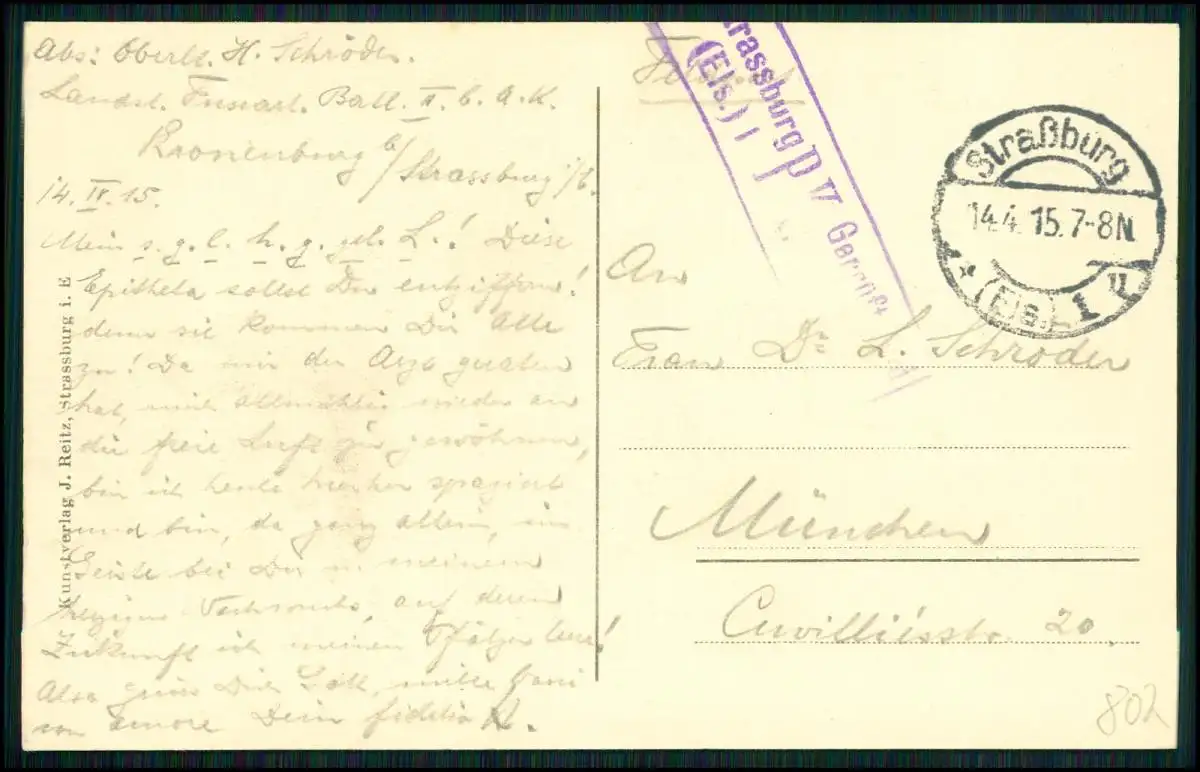 Abs: Oberlt. H. Schröder.
Landst. Fussart. Batl. II. b. A. K.
Kronenburg b/Strassburg i/E.
14. IV. 15.
Mein s. g. l. h. g. gel. L.! Diese
Epitheta sollst Du entziffern!
denn sie kommen Dir Alle
zu! Da mir der Arzt geraten
hat, mich allmählig wieder an
die freie Luft zu gewöhnen,
bin ich heute hierher spaziert
und bin, da ganz allein, im
Geiste bei Dir u. meinem
herzigen auf deren
Zukunft ich meinen Pfälzer leer!
Also grüss Dich Gott, mille
con amore Dein H.
Kunstverlag J. Reitz, Strassburg i. E
Feldpost
Strassburg
(Els.) 1
P W
Straßburg
14.4.15. 7-8N.
* (Els.) 1 u
An
Frau Dr. L. Schröder
München
Cuvilliésstr. 20.
802